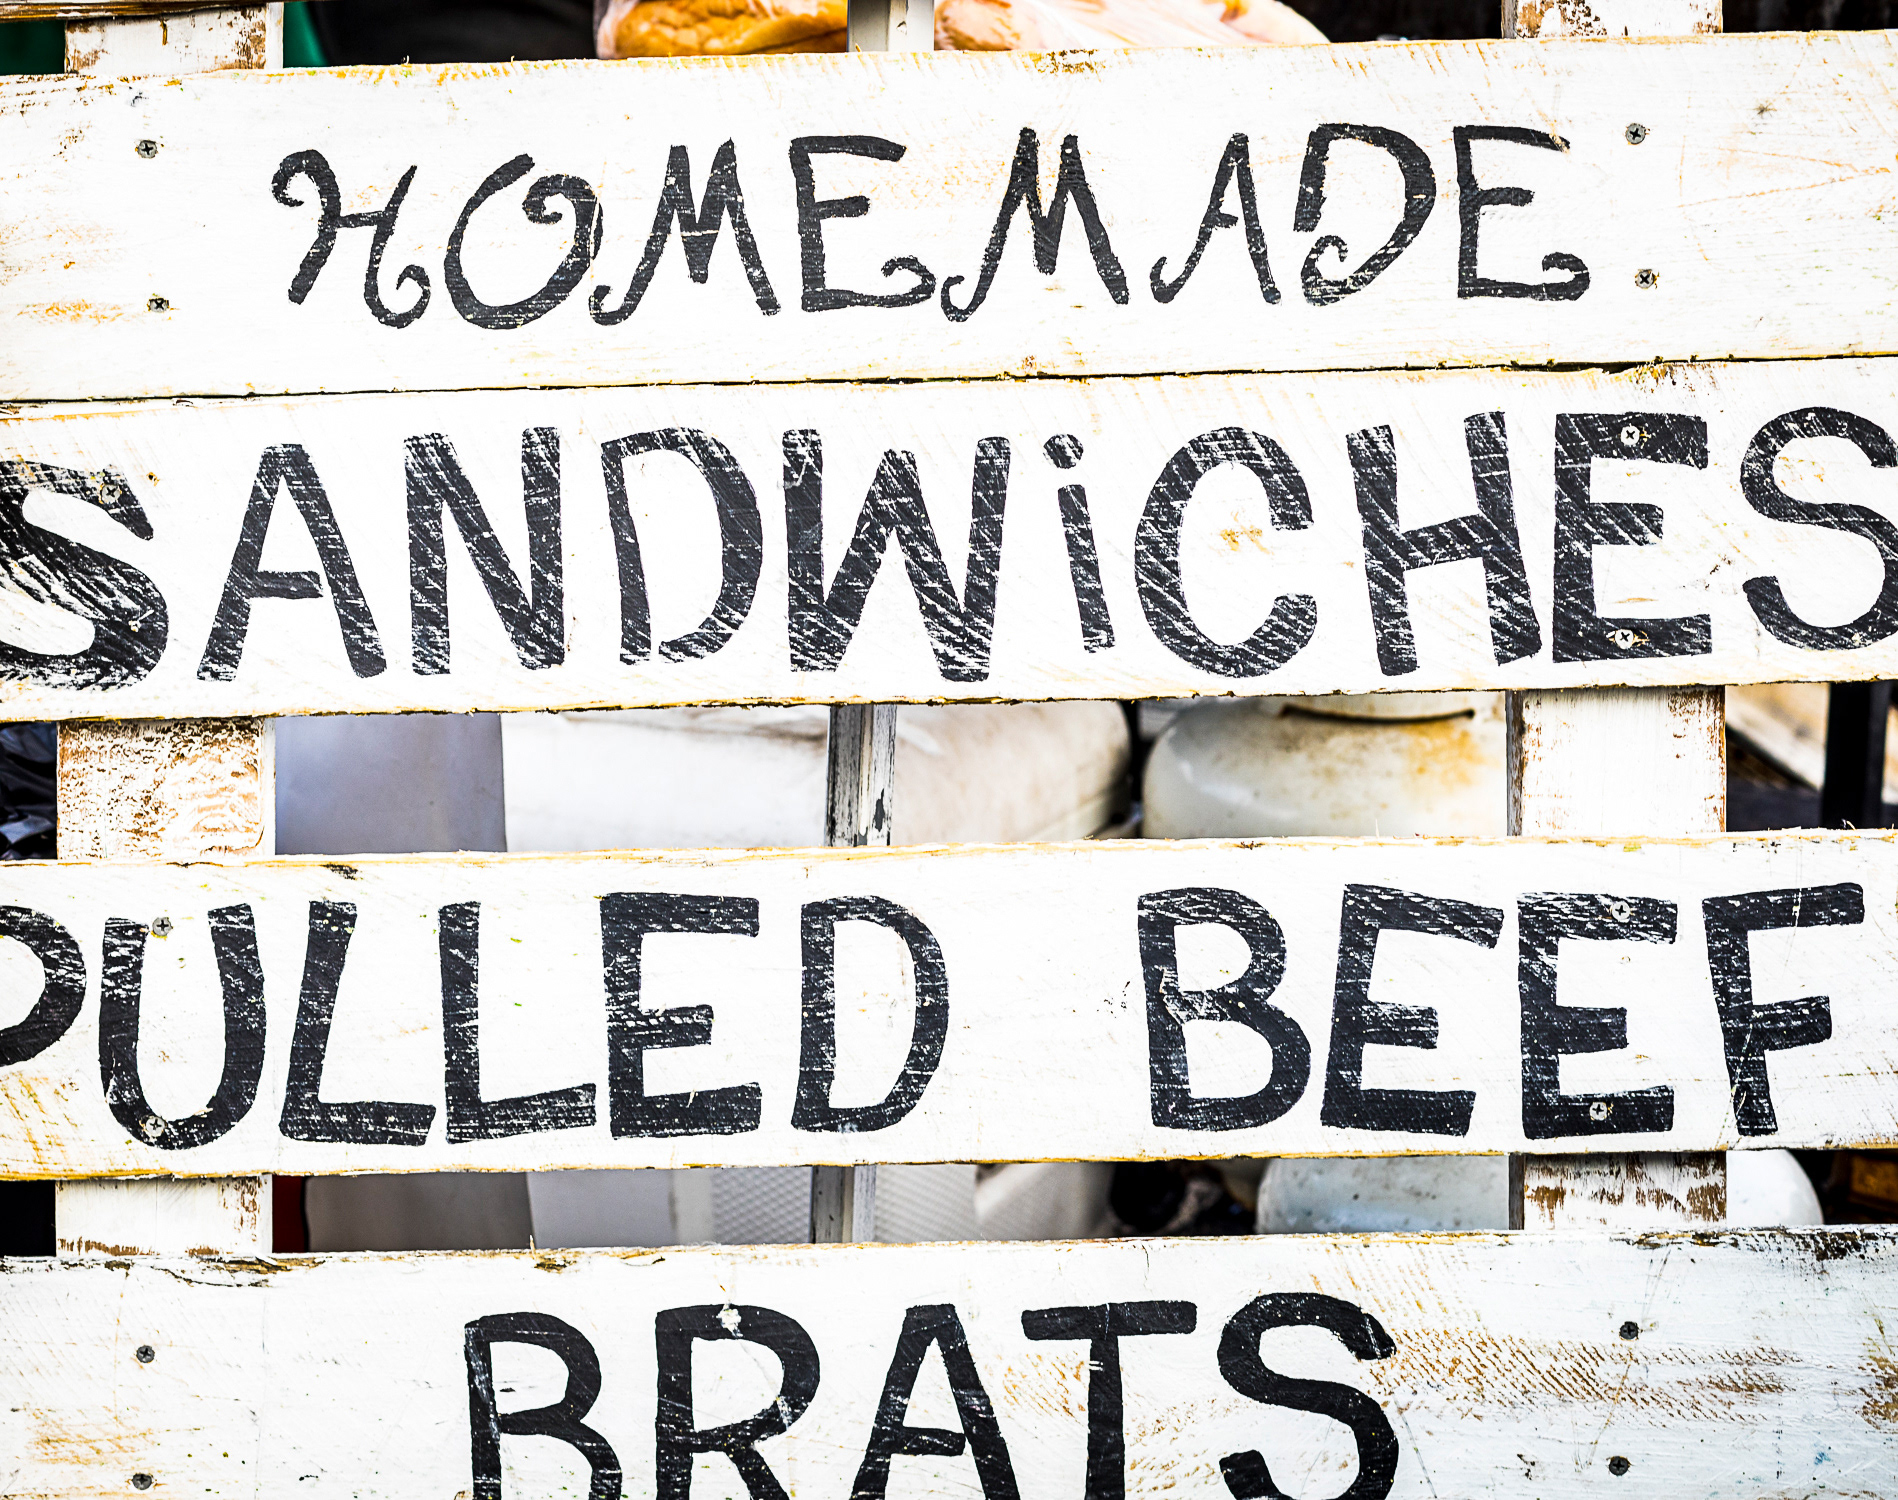 HOMEMADE
SANDWiCHES
PULLED BEEF
BRATS